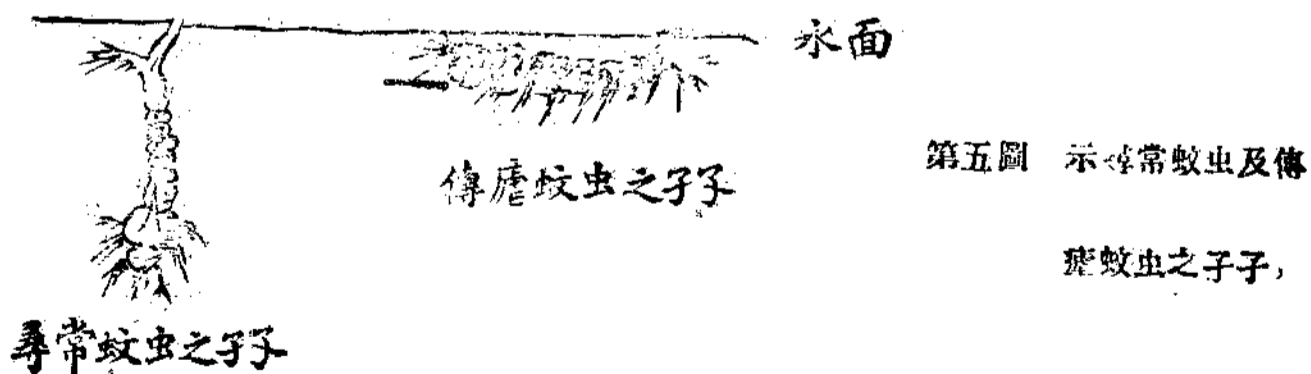 水面
傳瘧蚊虫之孑孓
尋常蚊虫之孑孓
第五圖 示尋常蚊虫及傳
瘧蚊虫之孑孓,